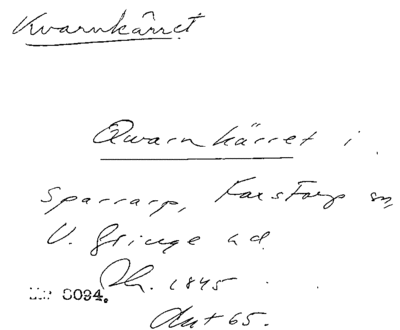 Kvarnkärret
Qwarnkärret i
Sparrarp, Farstorp sn,
V. Göinge hd.
Dh. 1845
8094.
Akt 65.